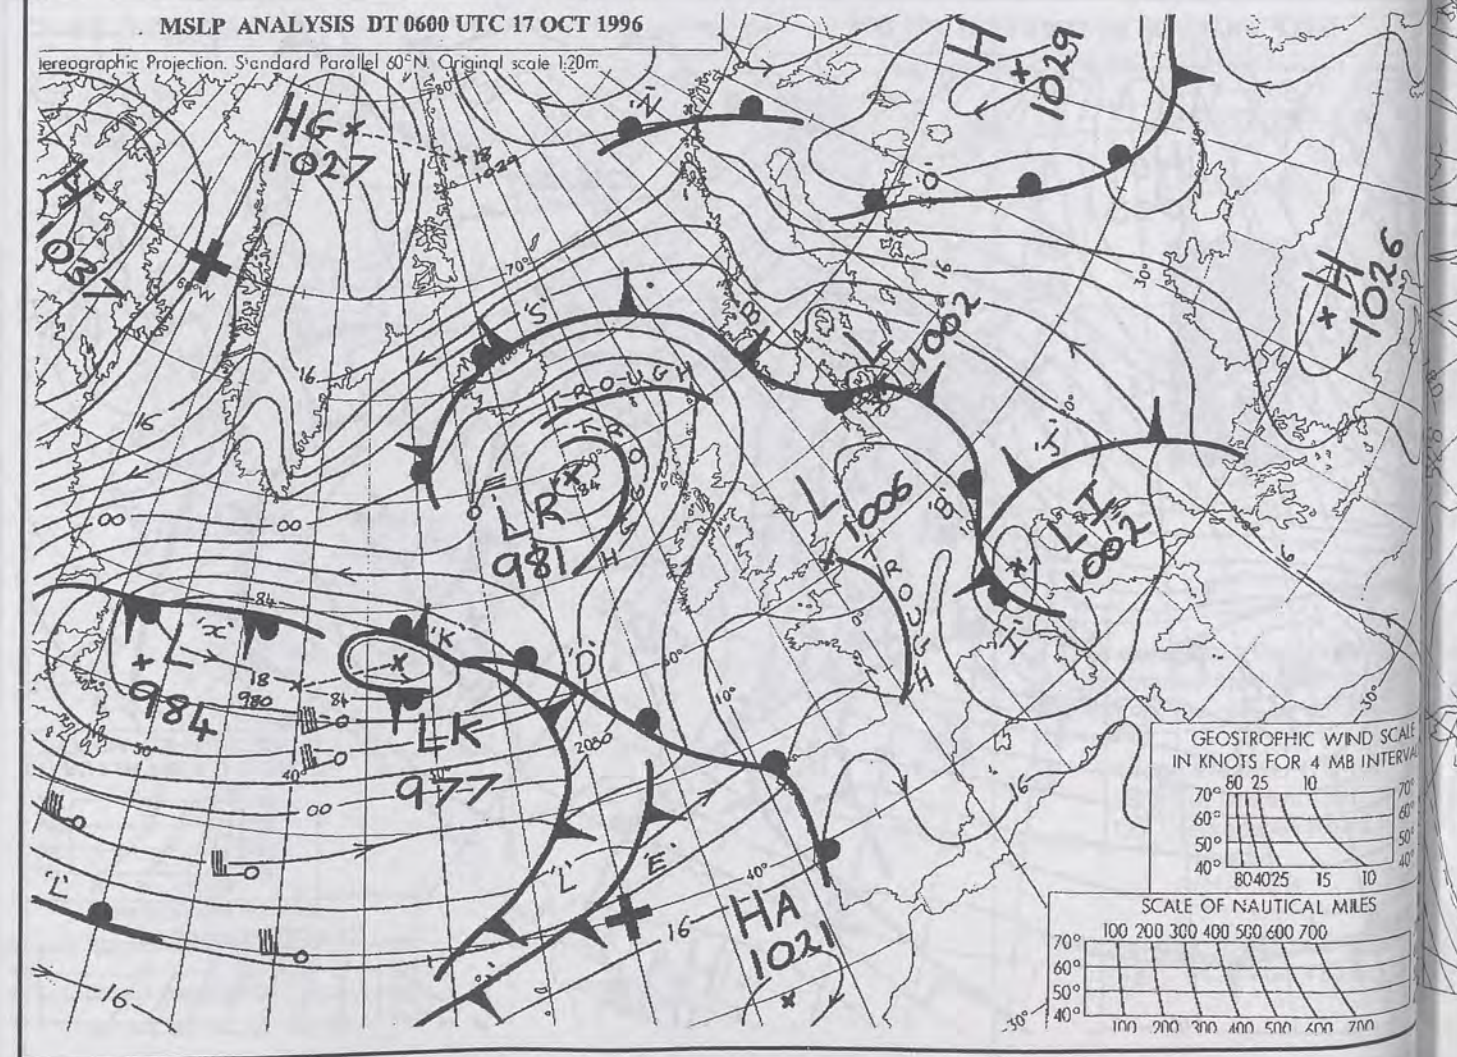 MSLP ANALYSIS DT 0600 UTC 17 OCT 1996
tereographic Projection. Standard Parallel 60°N. Original scale 1:20m
80°
HG
1027
18
1029
'N'
H
1029
'O'
H
1026
16
30°
70°
'S'
16
16
'B'
L
1002
TROUGH
TROUGH
84
LR
981
00
00
L
1006
'B'
'J'
LI
1002
'I'
TROUGH
0°
10°
6
84
'X'
L
984
18
980
84
'K'
LK
977
'D'
2080
50°
40°
00
'L'
'L'
'E'
40°
16
HA
1021
16
16
30°
GEOSTROPHIC WIND SCALE
IN KNOTS FOR 4 MB INTERVA
80 25 10
70° 70°
60° 60°
50° 50°
40° 40°
80 40 25 15 10
SCALE OF NAUTICAL MILES
100 200 300 400 500 600 700
70°
60°
50°
40°
100 200 300 400 500 600 700